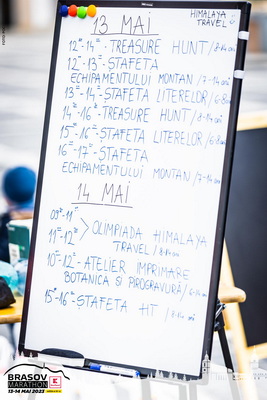 13 MAI
HIMALAYA
TRAVEL
12⁰⁰-14⁰⁰-TREASURE HUNT/8-14 ani
12⁰⁰-13⁰⁰-ȘTAFETA
ECHIPAMENTULUI MONTAN/7-14 ani
13⁰⁰-14⁰⁰-ȘTAFETA LITERELOR/6-8 ani
14⁰⁰-16⁰⁰-TREASURE HUNT/8-14 ani
15⁰⁰-16⁰⁰-ȘTAFETA LITERELOR/6-8 ani
16⁰⁰-17⁰⁰-ȘTAFETA
ECHIPAMENTULUI MONTAN/7-14 ani
14 MAI
09⁰⁰-11⁰⁰
11⁰⁰-12⁰⁰ > OLIMPIADA HIMALAYA
TRAVEL/8-14 ani
10⁰⁰-12⁰⁰-ATELIER IMPRIMARE
BOTANICA SI PIROGRAVURĂ/6-14 ani
15⁰⁰-16⁰⁰-STAFETA HT /8-14 ani
BRASOV
MARATHON
13-14 MAI 2023